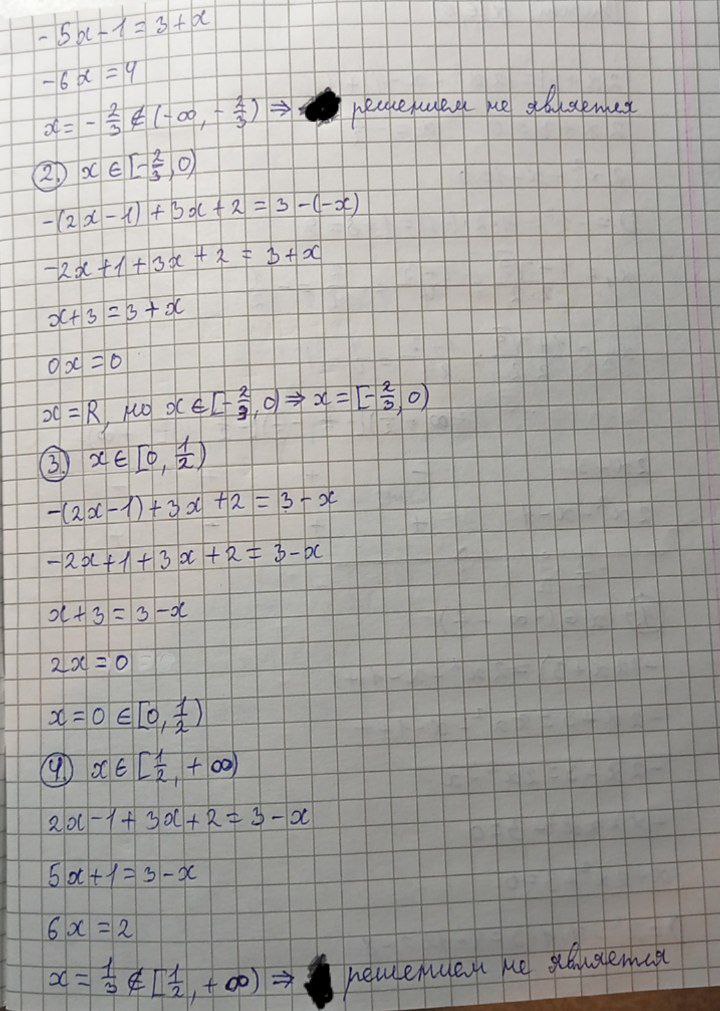 -5x-1=3+x
-6x=4
x=-2/3 ∉ (-∞, -2/3) ⇒ решением не является
2. x∈[-2/3, 0)
-(2x-1)+3x+2=3-(-x)
-2x+1+3x+2=3+x
x+3=3+x
0x=0
x=R, но x∈[-2/3, 0) ⇒ x=[-2/3, 0)
3. x∈[0, 1/2)
-(2x-1)+3x+2=3-x
-2x+1+3x+2=3-x
x+3=3-x
2x=0
x=0∈[0, 1/2)
4. x∈[1/2, +∞)
2x-1+3x+2=3-x
5x+1=3-x
6x=2
x=1/3 ∉ [1/2, +∞) ⇒ решением не является